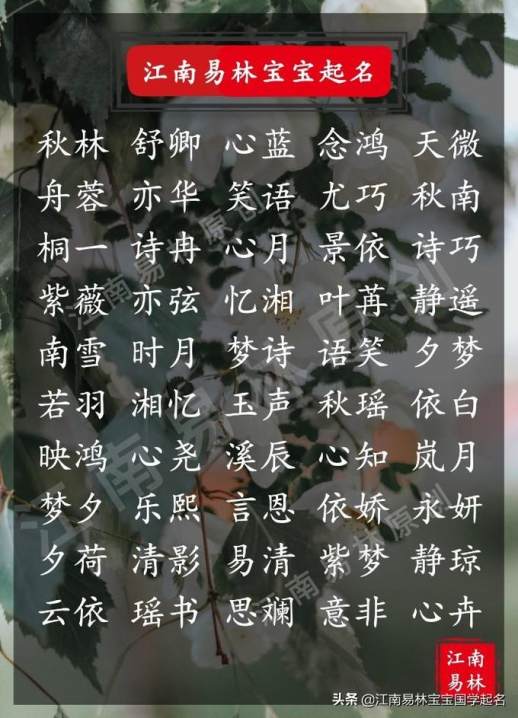 江南易林宝宝起名
秋林 舒卿 心蓝 念鸿 天微
舟蓉 亦华 笑语 尤巧 秋南
桐一 诗冉 心月 景依 诗巧
紫薇 亦弦 忆湘 叶苒 静遥
南雪 时月 梦诗 语笑 夕梦
若羽 湘忆 玉声 秋瑶 依白
映鸿 心尧 溪辰 心知 岚月
梦夕 乐熙 言恩 依娇 永妍
夕荷 清影 易清 紫梦 静琼
云依 瑶书 思斓 意非 心卉
江南
易林
头条 @江南易林宝宝国学起名